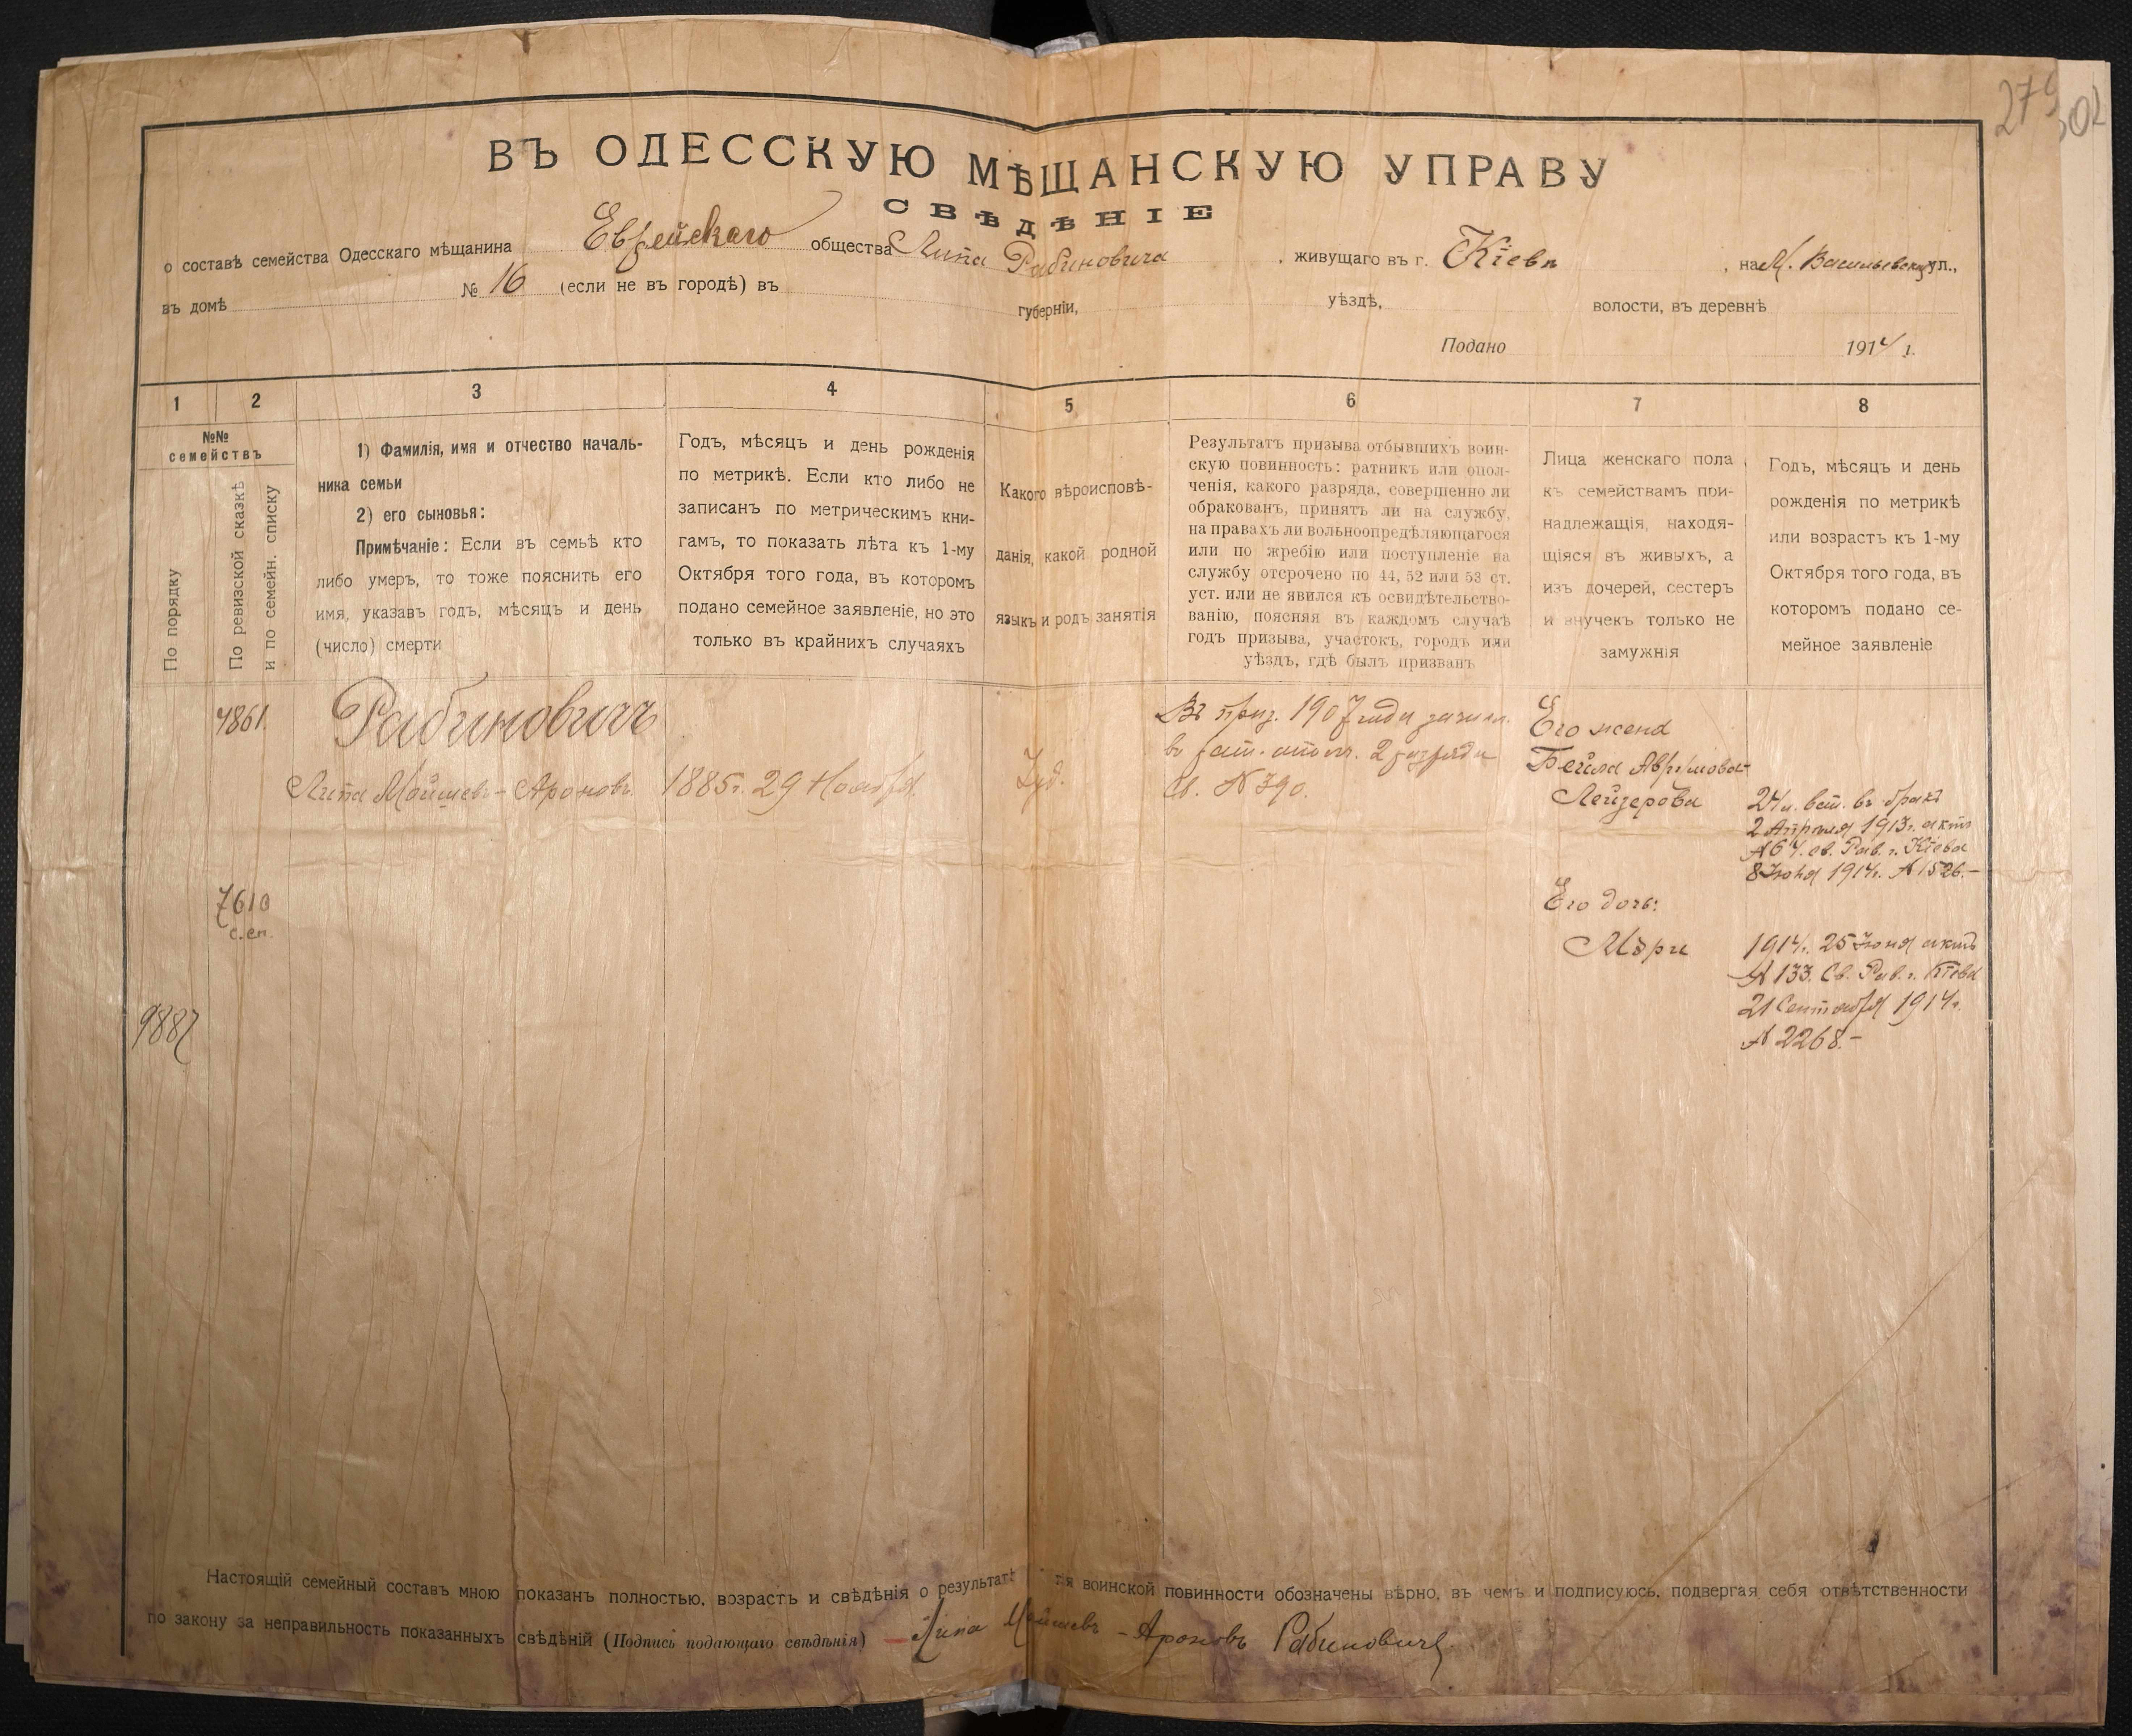 279
302
ВЪ ОДЕССКУЮ МѢЩАНСКУЮ УПРАВУ
СВѢДѢНІЕ
о составѣ семейства Одесскаго мѣщанина Еврейскаго общества Липа Рабиновича, живущаго въ г. Кіевѣ, на М. Васильевской ул.,
въ домѣ № 16 (если не въ городѣ) въ губерніи, уѣздѣ, волости, въ деревнѣ
Подано 1914 г.
1 2 3 4 5 6 7 8
№№
семействъ
По порядку
По ревизской сказкѣ
и по семейн. списку
1) Фамилія, имя и отчество началь-
ника семьи
2) его сыновья:
Примѣчаніе: Если въ семьѣ кто
либо умеръ, то тоже пояснить его
имя, указавъ годъ, мѣсяцъ и день
(число) смерти
Годъ, мѣсяцъ и день рожденія
по метрикѣ. Если кто либо не
записанъ по метрическимъ кни-
гамъ, то показать лѣта къ 1-му
Октября того года, въ которомъ
подано семейное заявленіе, но это
только въ крайнихъ случаяхъ
Какого вѣроисповѣ-
данія, какой родной
языкъ и родъ занятія
Результатъ призыва отбывшихъ воин-
скую повинность: ратникъ или опол-
ченія, какого разряда, совершенно ли
обракованъ, принятъ ли на службу,
на правахъ ли вольноопредѣляющагося
или по жребію или поступленіе на
службу отсрочено по 44, 52 или 53 ст.
уст. или не явился къ освидѣтельство-
ванію, поясняя въ каждомъ случаѣ
годъ призыва, участокъ, городъ или
уѣздъ, гдѣ былъ призванъ
Лица женскаго пола
къ семействамъ при-
надлежащія, находя-
щіяся въ живыхъ, а
изъ дочерей, сестеръ
и внучекъ только не
замужнія
Годъ, мѣсяцъ и день
рожденія по метрикѣ
или возрастъ къ 1-му
Октября того года, въ
которомъ подано се-
мейное заявленіе
4861.
Рабиновичъ
Липа Мойшевъ-Ароновъ.
1885г. 29 Ноября
Іуд.
Въ приз. 1907 года зачисл.
въ рат. ополч. 2 разряда
Св. № 390.
Его жена
Бейла Аврумова-
Лейзерова
24 л. вст. въ бракъ
2 Апреля 1913г. актъ
№ 64. св. Рав. г. Кіева
8 Іюня 1914г. № 1526.-
7610
с.сп.
Его дочь:
Мэри
1914г. 25 Іюня актъ
№ 133. Св. Рав. г. Кіева
21 Сентября 1914г.
№ 2268.-
9887
Настоящій семейный составъ мною показанъ полностью, возрастъ и свѣдѣнія о результатѣ воинской повинности обозначены вѣрно, въ чемъ и подписуюсь, подвергая себя отвѣтственности
по закону за неправильность показанныхъ свѣдѣній (Подпись подающаго свѣдѣнія) Липа Мойшевъ-Ароновъ Рабиновичъ